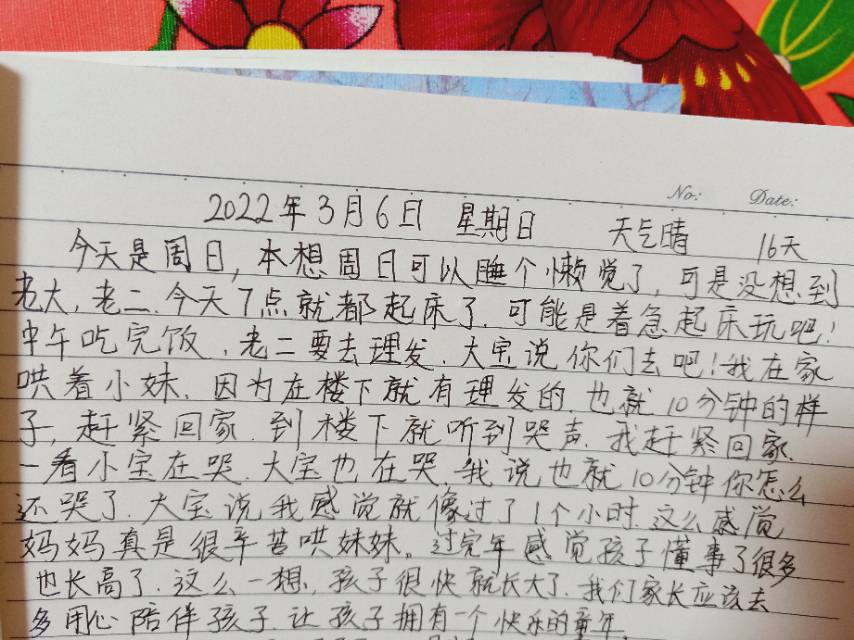 No: Date:
2022年3月6日 星期日 天气晴 16天
今天是周日,本想周日可以睡个懒觉了,可是没想到
老大,老二.今天7点就都起床了.可能是着急起床玩吧!
中午吃完饭,老二要去理发.大宝说你们去吧!我在家
哄着小妹.因为在楼下就有理发的.也就10分钟的样
子,赶紧回家.到楼下就听到哭声.我赶紧回家.
一看小宝在哭.大宝也在哭.我说也就10分钟你怎么
还哭了.大宝说我感觉就像过了1个小时.这么感觉
妈妈真是很辛苦哄妹妹。过完年感觉孩子懂事了很多
也长高了.这么一想,孩子很快就长大了.我们家长应该去
多用心陪伴孩子.让孩子拥有一个快乐的童年.